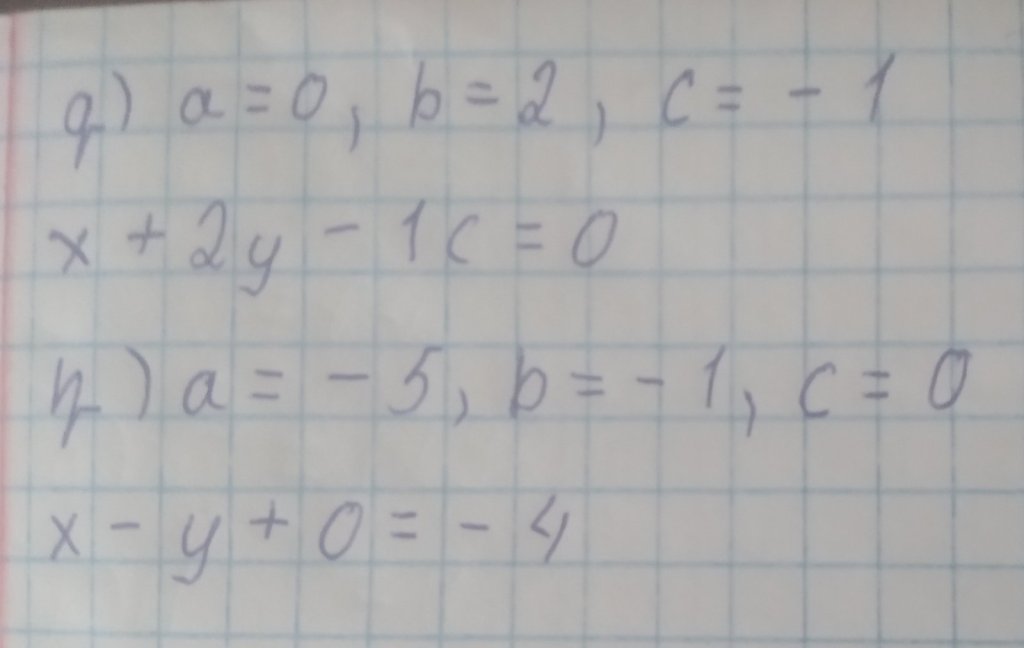 գ) a = 0, b = 2, c = - 1
x + 2y - 1c = 0
դ) a = - 5, b = - 1, c = 0
x - y + 0 = - 4